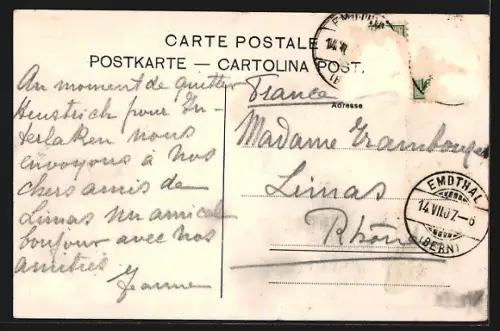 CARTE POSTALE
POSTKARTE — CARTOLINA POST.
Au moment de quitter
Heustrich pour In-
terlaken nous
envoyons à nos
chers amis de
Limas un amical
bonjour avec nos
amitiés
Jeanne
France
Adresse
Madame
Limas
Rhône
EMDTHAL
14.VII.07.-6
(BERN)